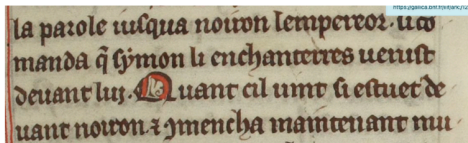 https://gallica.bnf.fr/ark:/12
la parole iusqua noiron lempereor. u co
manda q̃ symon li enchanterres uenist
deuant luy. Quant cil uint si estuet de
uant noiron ⁊ ꝯmencha maintenant mu